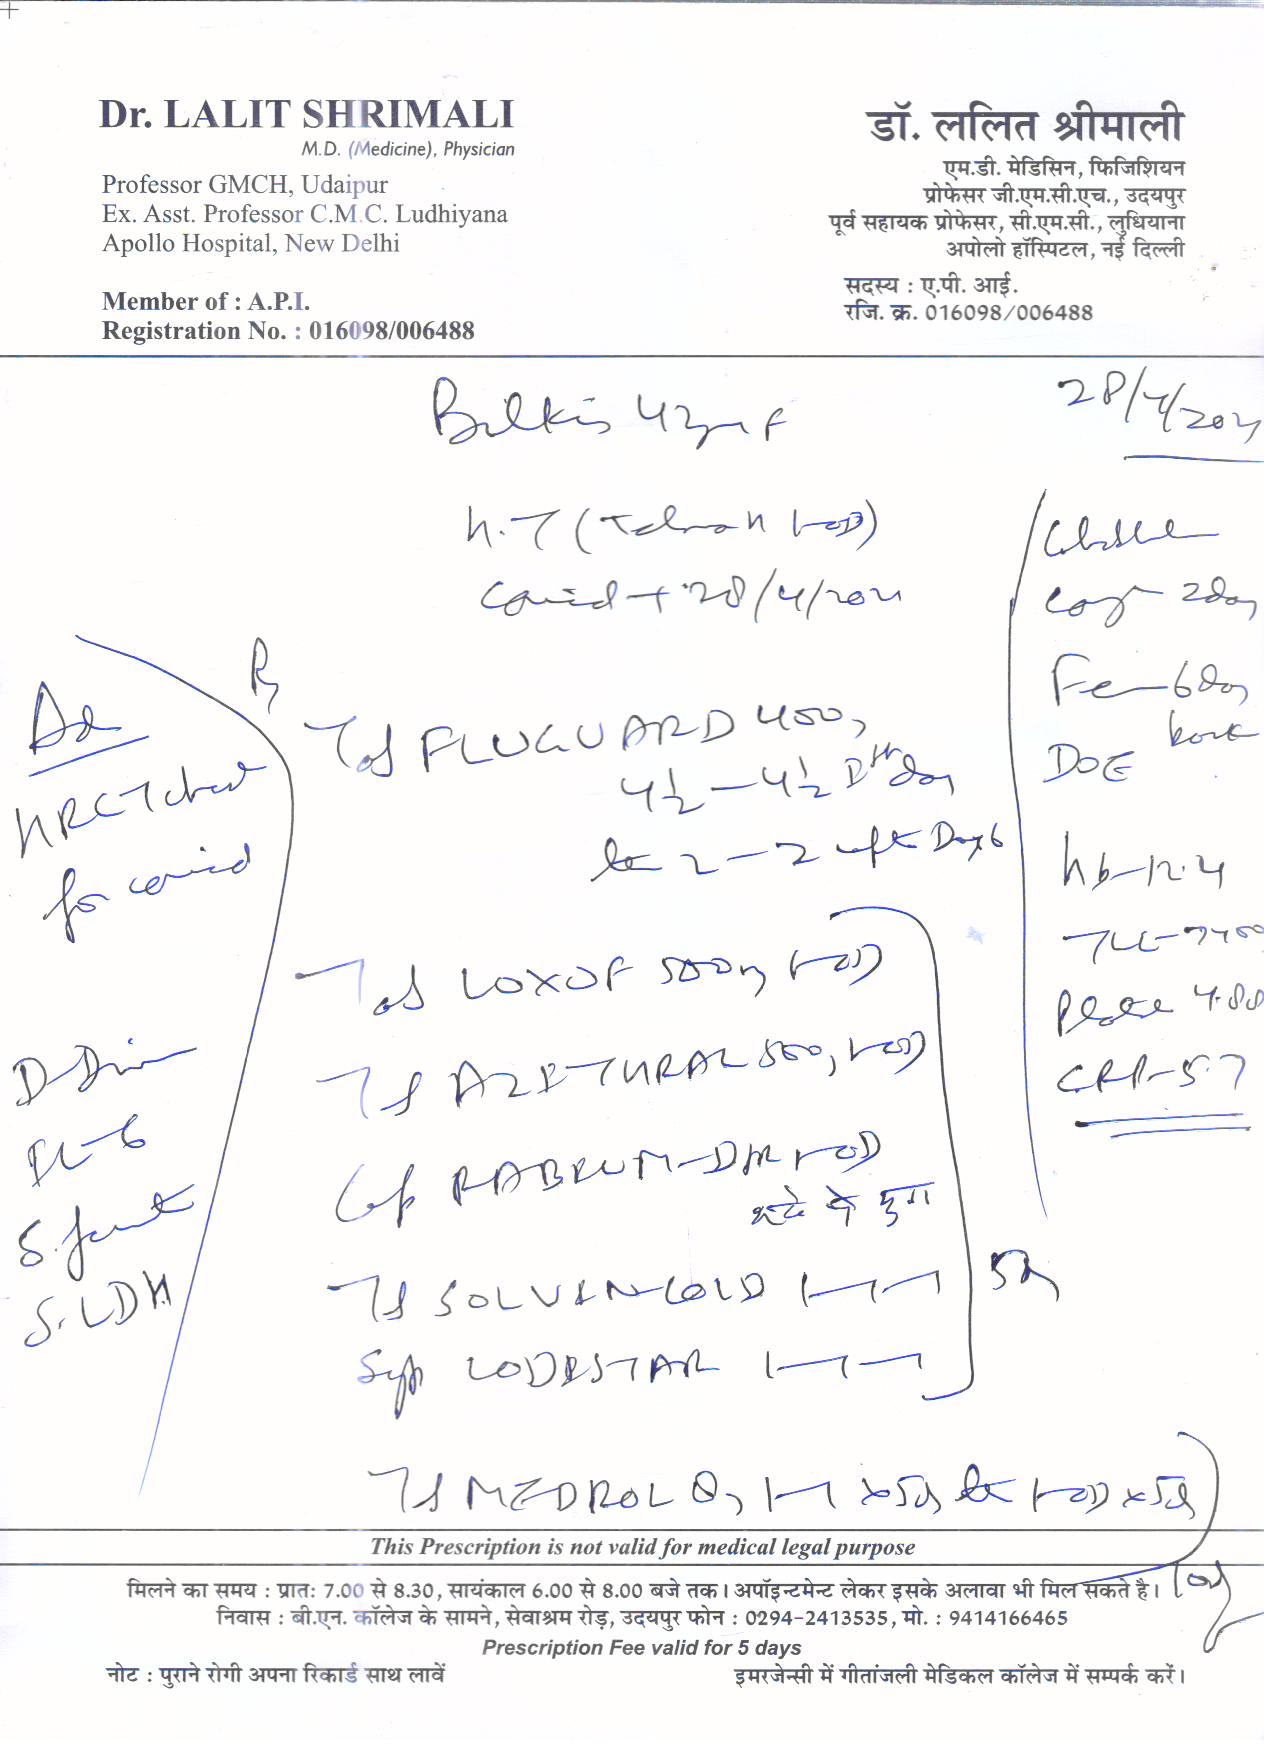 Dr. LALIT SHRIMALI
M.D. (Medicine), Physician
Professor GMCH, Udaipur
Ex. Asst. Professor C.M.C. Ludhiyana
Apollo Hospital, New Delhi
Member of : A.P.I.
Registration No. : 016098/006488
डॉ. ललित श्रीमाली
एम.डी. मेडिसिन, फिजिशियन
प्रोफेसर जी.एम.सी.एच., उदयपुर
पूर्व सहायक प्रोफेसर, सी.एम.सी., लुधियाना
अपोलो हॉस्पिटल, नई दिल्ली
सदस्य : ए.पी. आई.
रजि. क्र. 016098/006488
Bilkis 42yr F
28/4/2021
H.T (
Covid + 28/4/2021
Ad
HRCT chest
for covid
D-Dim
IL-6
S. Ferrit
S. LDH
Rx
Tab FLUGUARD 400,
4½ – 4½ Ist day
2 – 2 upto Day 6
Tab LOXOF 500mg 1-OD
Tab AZITHRAL 500, 1-OD
Cap RABEKUM-DSR 1-OD
Tab SOLVIN COLD 1–1–1
Syp LODISTAR 1–1–1
5d
Tab MEDROL 8, 1–1 x 5d 1-OD x 5d
10d
Cough – 2day
Fe – 6day
DOE
Hb – 12.4
TLC – 7400
Platle 4.88
CRP – 5.7
This Prescription is not valid for medical legal purpose
मिलने का समय : प्रातः 7.00 से 8.30, सायंकाल 6.00 से 8.00 बजे तक। अपॉइन्टमेन्ट लेकर इसके अलावा भी मिल सकते है।
निवास : बी.एन. कॉलेज के सामने, सेवाश्रम रोड़, उदयपुर फोन : 0294-2413535, मो. : 9414166465
Prescription Fee valid for 5 days
नोट : पुराने रोगी अपना रिकार्ड साथ लावें
इमरजेन्सी में गीतांजली मेडिकल कॉलेज में सम्पर्क करें।